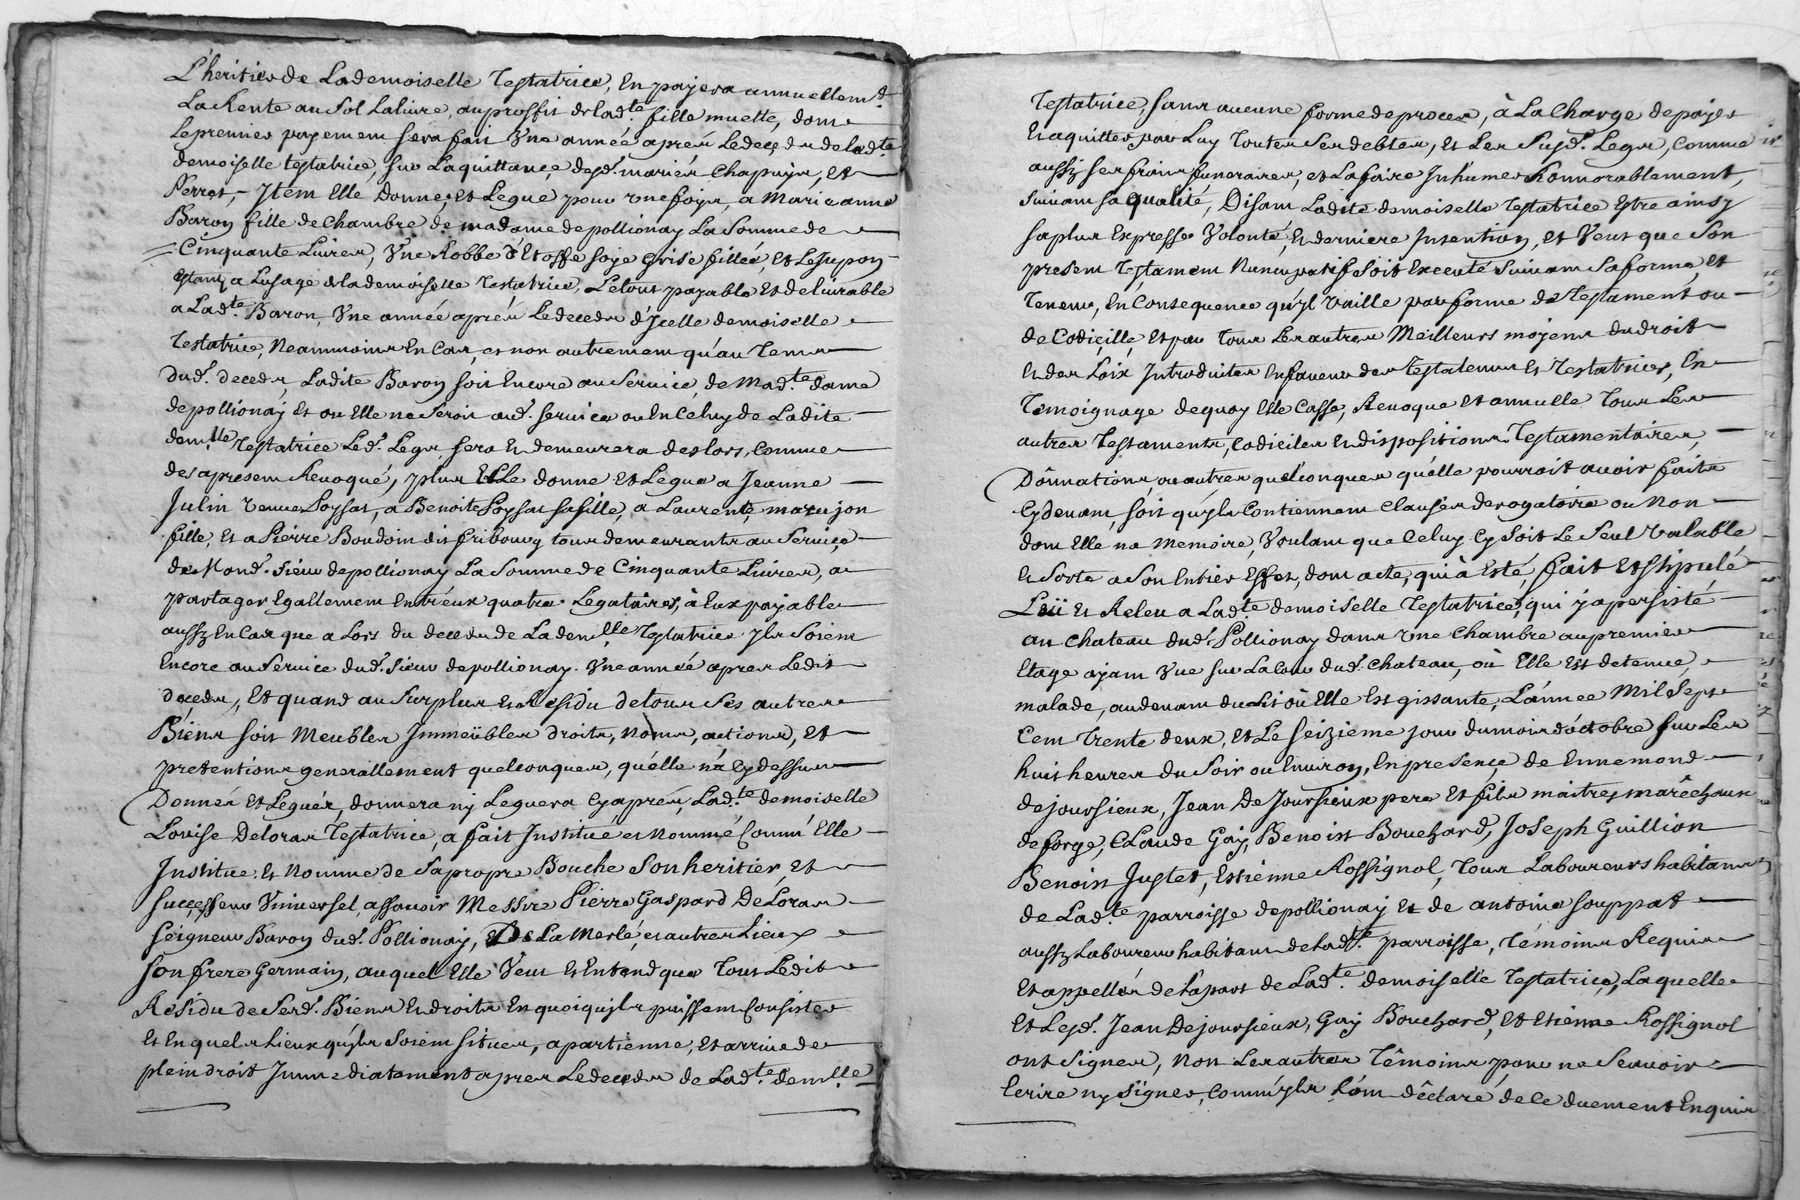 L'heritier de Lademoiselle Testatrice, En payera annuellemt.
La Rente au Sol Laliure, auproffit de lade. te fille muette, dont
Lepremier payement sera fait Vne année aprés Ledeceds de lad.te
demoiselle testatrice, sur Laquittance desd. mariés Chapuys, Et
Perret, Jtem Elle Donne et Legue pour vne foys, a Marieanne
Baron fille de Chambre de madame depollionay La Somme de
Cinquante Liures, Vne Robbe d'Etoffe soye Grise fillée, et Lejupon
Estant a Lusage de lademoiselle Testatrice, Letout payable Et deliurable
a Lad.te Baron, Vne année aprés Ledeceds d'Jcelle demoiselle
Testatrice, Neanmoins En Cas, et non autrement qu'au Tems
dud. deceds, Ladite Baron soit Encore au Seruice de Mad.te dame
depollionaÿ Et ou Elle ne Seroit aud. seruice ou En Celuy de Ladite
dem.lle Testatrice Led. Legs sera Et demeurera deslors, Comme
des apresent Reuoqué, plus Elle donne Et Legue a Jeanne
Julin veuue Poyssat, a Benoite Poyssat sa fille, a Laurente, marujon
fille, Et a Pierre Boudoin dit fribourg tous demeurants au Seruice
de Mond. Sieur depollionay La Somme de Cinquante Liures, a
partager Egallement Entr'eux quatre Legataires, à Eux payable
aussy En Cas que a Lors du deceds de La dem.lle Testatrice yls Soient
Encore au Seruice dud. Sieur depollionay. Vne année apres Ledit
deceds, Et quand au Surplus et Residu de tous Ses autres
Biens soit Meubles Jmmeübles droits, noms, actions, Et
pretentions generallement quelconques, qu'elle n'a Cy dessus
Donnés Et Legués, donnera ny Leguera Cy aprés, Lad.te demoiselle
Louise Deloras Testatrice, a fait Jnstitué et Nommé Comm' Elle
Jnstitue, Et Nomme de Sapropre Bouche Son heritier, Et
successeur Vniuersel, assauoir Messire Pierre Gaspard DeLoras
Seigneur Baron dud. Pollionay, Et De La Merlé, et autres Lieux
son frere Germain, auquel Elle Veut Et Entend que Tout Ledit
Residu de Sesd. Biens Et droits En quoi qu'yls puissent Consister
Et En quels Lieux qu'yls Soient situés, apartienne, Et arriue de
plein droit Jmmediatement apres Ledeceds de Lad.te dem.lle
Testatrice, sans aucune forme de proces, à La Charge de payer
Et aquitter par Luy Toutes Ses debtes, Et Les Susd. Legs, Comme
aussy ses frais funeraires, et La faire Jnhumer Honnorablement,
Suiuant sa qualité, Disant Ladite demoiselle Testatrice Estre ainsy
saplus Expresse Volonté, Et derniere Jntention, et Veut que Son
present Testament Nuncupatif Soit Executé Suiuant Saforme, Et
Teneur, En Consequence qu'yl vaille par forme de Testament ou
de Codicille Et par tous Les autres Meilleurs moyens du droit
Et des Loix Jntroduites En faueur des Testateurs Et Testatrices, En
Temoignage dequoy Elle Casse, Reuoque Et annulle Tous Les
autres Testaments, Codiciles Et dispositions Testamentaires,
Dônnations, ou autres quelconques qu'elle pourroit auoir faits
Cydeuant, soit qu'yls Contiennent Clauses derogatoire ou Non
dont Elle na Memoire, Voulant que Celuy Cy Soit Le Seul Valable
Et Sorte a Son Entier Effet, dont acte, qui à Esté fait Et stipulé
Leü Et Releu a Lad.te demoiselle Testatrice, qui y a persisté
au Chateau dud. Pollionay dans vne Chambre au premier
Etage ajant Vue sur La Cour dud. Chateau, où Elle Est detenue
malade, au deuant du Lit où Elle Est gissante, L'année Mil Sept
Cent Trente deux, Et Le seizieme jour du mois d'octobre sur Les
huit heures du Soir ou Enuiron, En presence de Ennemond
dejoursieux, Jean De Joursieux pere Et fils maitres marêchaux
de forge, Claude Gay, Benoist Bouchard, Joseph Guillion
Benoist Juster, Estienne Rossignol, Tous Laboureurs habitans
de Lad.te parroisse depollionaÿ Et de antoine souppat
aussy Laboureur habitant de Lad.te parroisse, Témoins Requis
Et appellés de la part de Lad.te demoiselle Testatrice, Laquelle
Et Lesd. Jean Dejoursieux, Gay Bouchard, Et Etienne Rossignol
ont Signés, Non Les autres Têmoins pour ne Sauoir
Ecrire ny signer, Comm'yls L'ont dêclaré de Ce duement Enquis